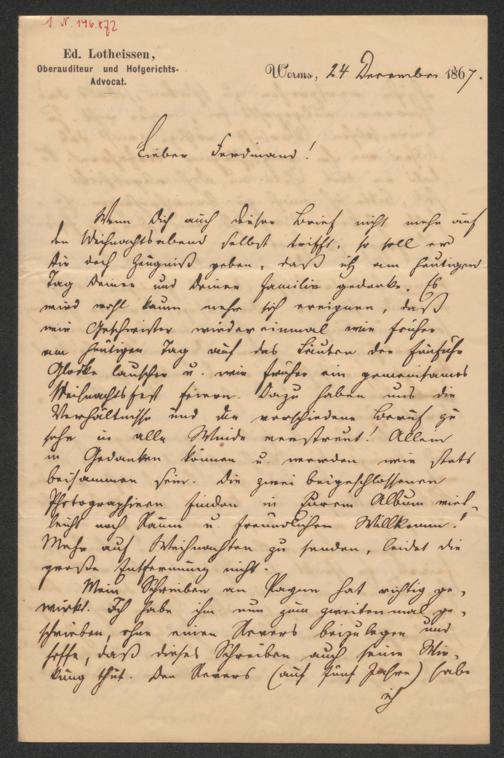 I. N. 196.872
Ed. Lotheissen,
Oberauditeur und Hofgerichts-
Advocat.
Worms, 24 December 1867.
Lieber Ferdinand!
Wenn Dich auch dieser Brief nicht mehr auf
den Weihnachtsabend selbst trifft, so soll er
Dir doch Zeugniß geben, daß ich am heutigen
Tag Deiner und Deiner Familie gedenke. Es
wird wohl kaum mehr sich ereignen, daß
wir Geschwister wieder einmal wie früher
am heutigen Tag auf das Läuten der fünfuhr
Glocke lauschen u. wie früher ein gemeinsames
Weihnachtsfest feiern. Dazu haben uns die
Verhältnisse und der verschiedene Beruf zu
sehr in alle Winde verstreut! Allein
in Gedanken können u. werden wir stets
beisammen sein. Die zwei beigeschlossenen
Photographieen finden in Eurem Album viel-
leicht noch Raum u. freundlichen Willkomm.
Mehr auf Weihnachten zu senden, leidet die
große Entfernung nicht.
Mein Schreiben an hat richtig ge-
wirkt. Ich habe ihm nun zum zweitenmal ge-
schrieben, ohne einen Revers beizulegen und
hoffe, daß dieses Schreiben auch seine Wir-
kung thut. Den Revers (auf fünf Jahre) habe
ich